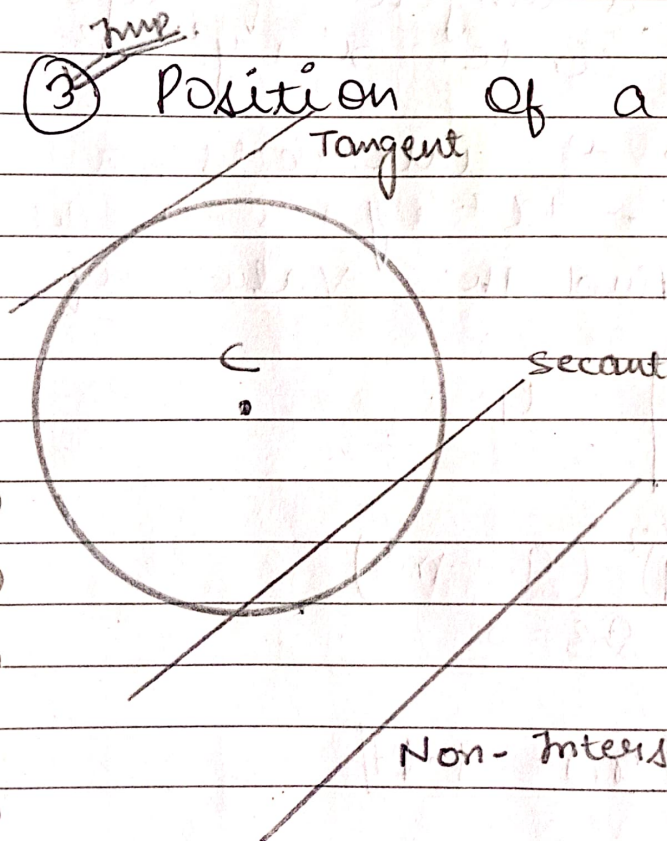 Imp.
③ Position Of a
Tangent
C
Secant
Non-Inters